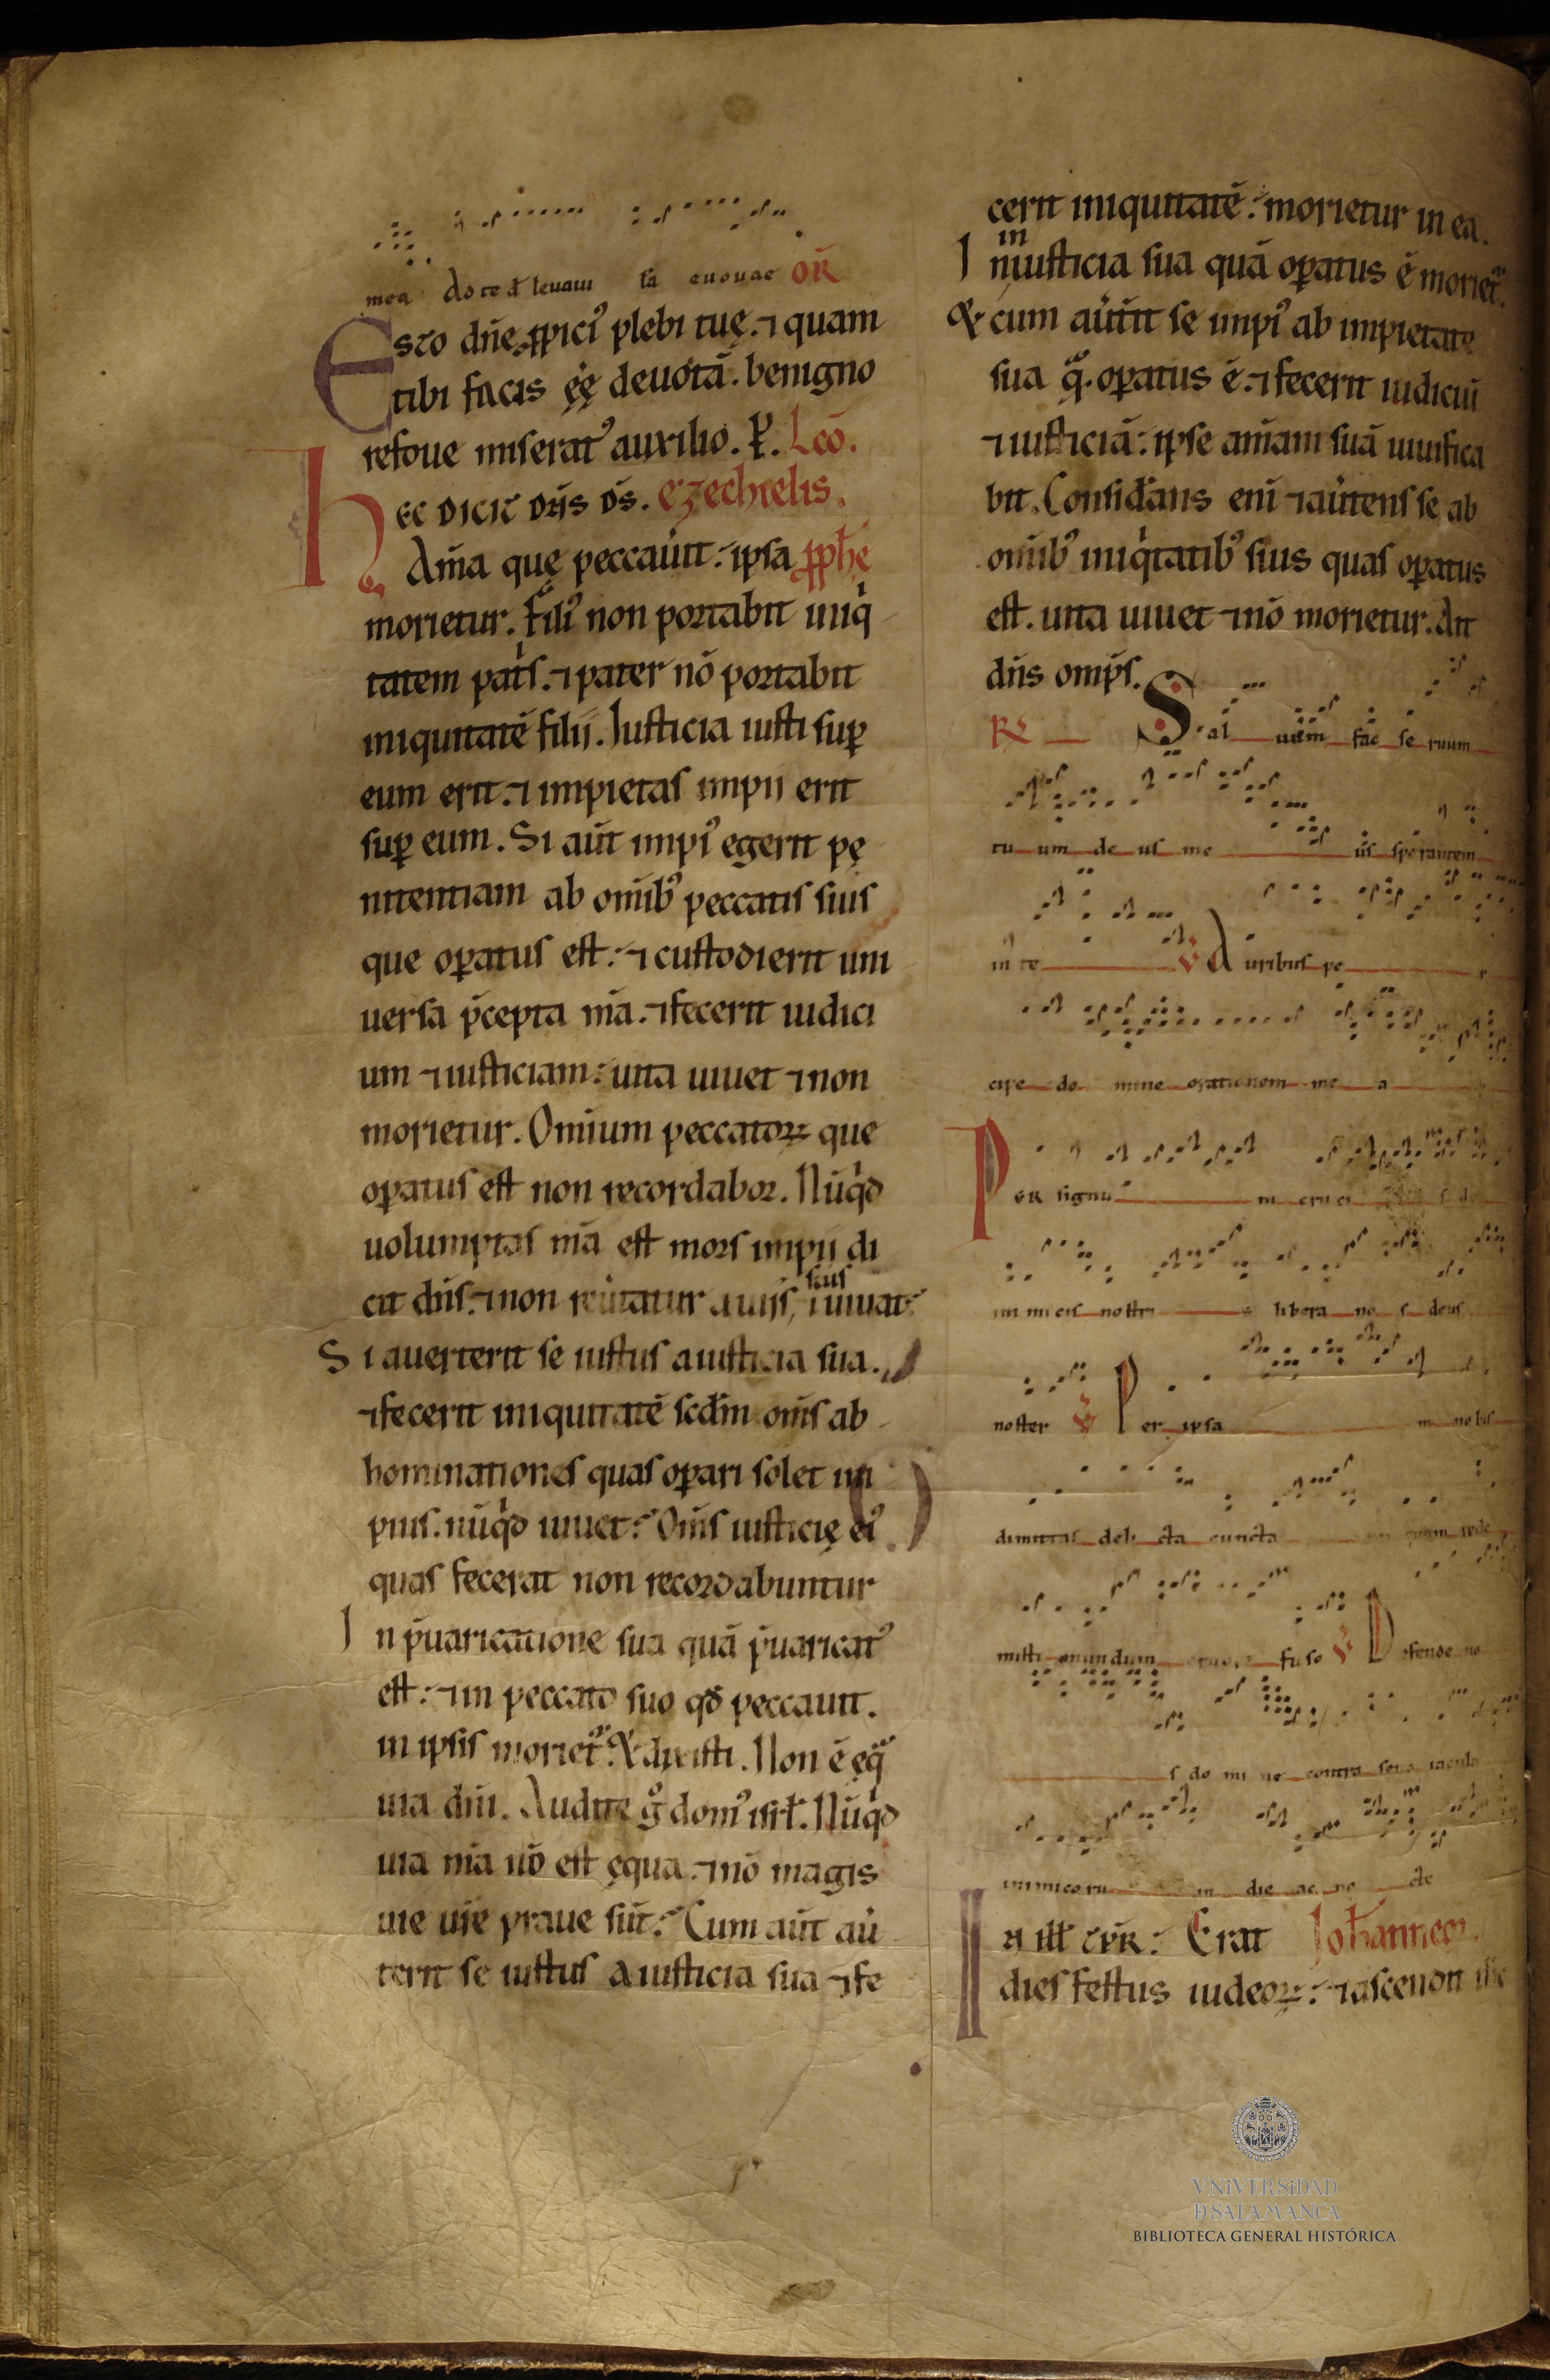 mea Ad te dñe leuaui ła euouae OR̃
Esto dñe ꝓpici᷒ plebi tuę. ⁊ quam
tibi facis ęę deuotā. benigno
refoue miserat᷒ auxilio. P̱. Lec̄.
hEC DICIT DN̄S DS̄. Ezechielis.
Aīa quę peccaũit: ipsa ꝓph̄e
morietur. Fili᷒ non portabit iniqͥ
tatem patͥs. ⁊ pater nō portabit
iniquitatē filii. Iusticia iusti suꝑ
eum erit. ⁊ impietas impii erit
suꝑ eum. Si aūt impi᷒ egerit pę
nitentiam ab omīb᷒ peccatis suis
que oꝑatus est: ⁊ custodierit uni
uersa p̄cepta m̄a. ⁊ fecerit iudici
um ⁊ iusticiam: uita uiuet ⁊ non
morietur. Omīum peccatoꝝ que
oꝑatus est non recordabor. Nūqͥd
uolumptas m̄a est mors impii di
cit dn̄s. ⁊ non reũtatur a uiis, suis ⁊ uiuat:
Si auerterit se iustus a iusticia sua.
⁊ fecerit iniquitatē scd̄m om̄s ab
hominationes quas oꝑari solet im
pius. nūqͥd uiuet: Om̄s iusticię ei᷒
quas fecerat non recordabuntur
In p̄uaricatione sua quā p̄uaricat᷒
est: ⁊ in peccato suo qđ peccauit.
in ipsis morietͬ. & dixisti. Non ē ęqͣ
uia dn̄i. Audite gͦ dom᷒ isrł. Nūqͥd
uia m̄a nō est ęqua. ⁊ nō magis
uie ur̄e praue sūt: Cum aūt aũ
terit se iustus a iusticia sua ⁊ fe
cerit iniquitatē: morietur in ea.
In iniusticia sua quā oꝑatus ē morietͬ.
& cum aũtit se impi᷒ ab impietate
sua qͣ. oꝑatus ē. ⁊ fecerit iudiciū
⁊ iusticiā: ipse aīam suā uiuifica
bit. Consid̄ans enī ⁊ aũtens se ab
omīb᷒ iniqͥtatib᷒ suis quas oꝑatus
est. uita uiuet ⁊ nō morietur. Ait
dn̄s omp̄s.
R̷ Sal uum fac se ruum
tu um de us me us sperantem
in te V̷ Auribus pe r
cipe do mine orationem me a
PER signu m cruci s de
inimicis nostri s libera no s deus
noster V̷ Per ipsa m nobis
dimittas deli cta cuncta
misti mundum fuso V̷ Defende no
s do mi ne contra seua iacula
inimicoru m die ac no cte
IN ILŁ TPR̄: Erat Ioh̄annem.
dies festus iudeoꝝ: ⁊ ascendit
VNiVERSiDAD
Ð SALAMANCA
BIBLIOTECA GENERAL HISTÓRICA